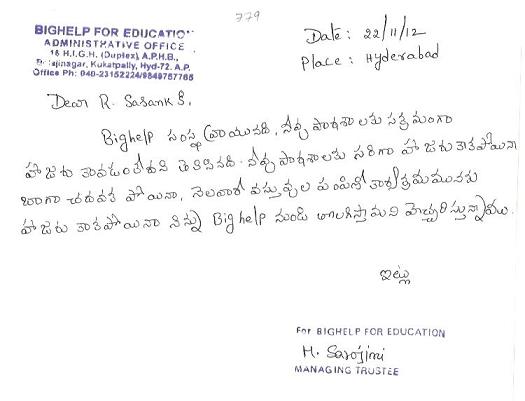 779
BIGHELP FOR EDUCATION
ADMINISTRATIVE OFFICE
16 H.I.G.H. (Duplex), A.P.H.B.,
Kukatpally, Hyd-72. A.P.
Office Ph: 040-23152224/9849757765
Date: 22/11/12
Place: Hyderabad
Dear R. Sasank K.,
Bighelp సంస్థ వ్రాయునది, నీవు పాఠశాలకు సక్రమంగా
హాజరు కావడంలేదని తెలిసినది. నీవు పాఠశాలకు సరిగా హాజరు కాకపోయినా
బాగా చదవక పోయినా, నెలవారీ వస్తువుల పంపిణీ కార్యక్రమమునకు
హాజరు కాకపోయినా నిన్ను Bighelp నుండి తొలగిస్తామని హెచ్చరిస్తున్నాము.
ఇట్లు
For BIGHELP FOR EDUCATION
H. Sarojini
MANAGING TRUSTEE